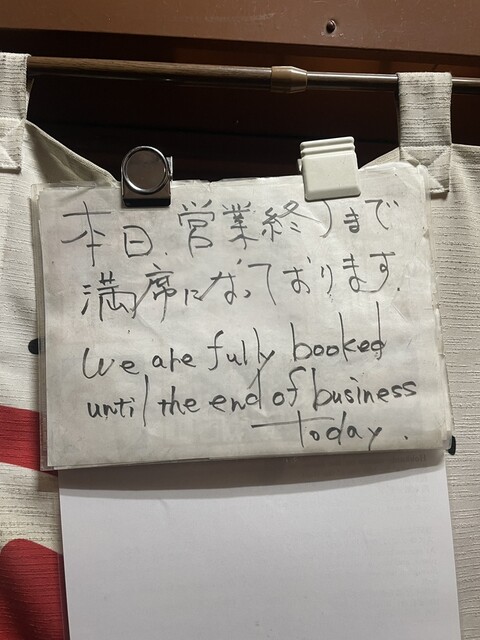 本日、営業終了まで
満席になっております.
We are fully booked
until the end of business
today.